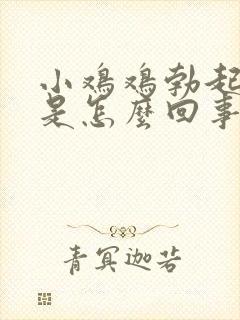 小鸡鸡勃起
是怎麼回事
青冥迦若